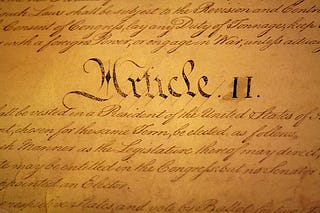 such Laws shall be subject to the Revision and Contro
Consent of Congress, lay any Duty of Tonnage, keep
with a foreign Power, or engage in War, unless actua
Article. II.
all be vested in a President of the United States of
chosen for the same Term, be elected, as follow
such Manner as the Legislature thereof may direct,
may be entitled in the Congress: but no Senator
appointed an Elector.
respective States, and vote by Ballot for two